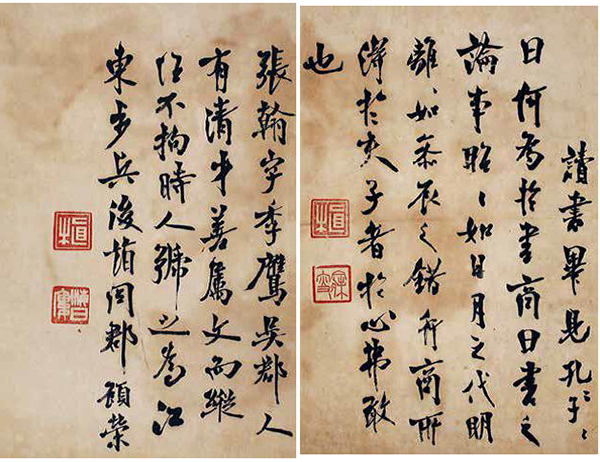 讀書畢見孔〻子〻
曰何為於書商曰書之
論事昭〻如日月之代明
離〻如參辰之錯行商所
得於夫子者於心弗敢
也
張翰字季鷹吳郡人
有清才善屬文而縱
任不拘時人號之為江
東步兵後謁同郡顧榮